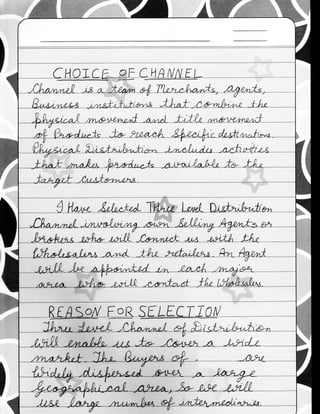 CHOICE OF CHANNEL
Channel is a team of Merchants, agents,
Business institutions that combine the
physical movement and title movement
of Products to reach Specific destinations.
Physical Distribution includes activities
that makes products available to the
target Customers.
I Have Selected Three Level Distribution
Channel involving own Selling Agents or
brokers who will Connect us with the
Wholesalers and the retailers. An Agent
will be appointed in each major
area who will contact the Wholesalers.
REASON FOR SELECTION
Three Level Channel of Distribution
will enable us to Cover a wide
market. The Buyers of . are
Widely dispersed over a large
Geographical area, So we will
use large number of intermediaries.